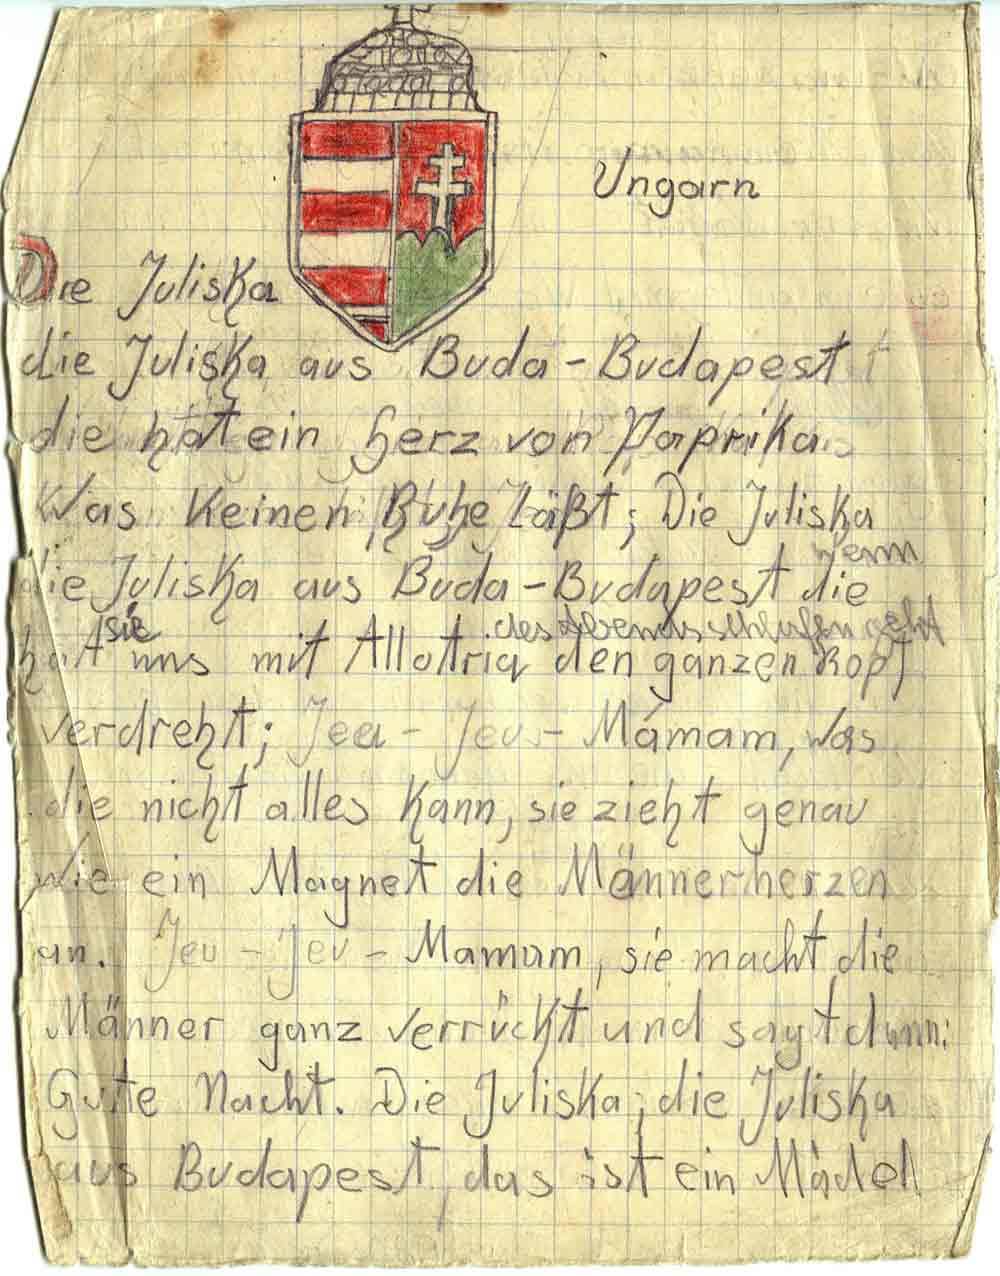 Ungarn
Die Juliska
die Juliska aus Buda-Budapest
die hat ein Herz von Paprika
Was keinen Ruhe läßt; Die Juliska
wenn
die Juliska aus Buda-Budapest die
sie des Abends schlafen geht
hat uns mit Allotria den ganzen Kopf
verdreht; Jeu - Jeu - Mámam, was
die nicht alles kann, sie zieht genau
wie ein Magnet die Männerherzen
an. Jeu - Jeu - Mamam, sie macht die
Männer ganz verrückt und sagt dann:
Gute Nacht. Die Juliska, die Juliska
aus Budapest, das ist ein Mädel